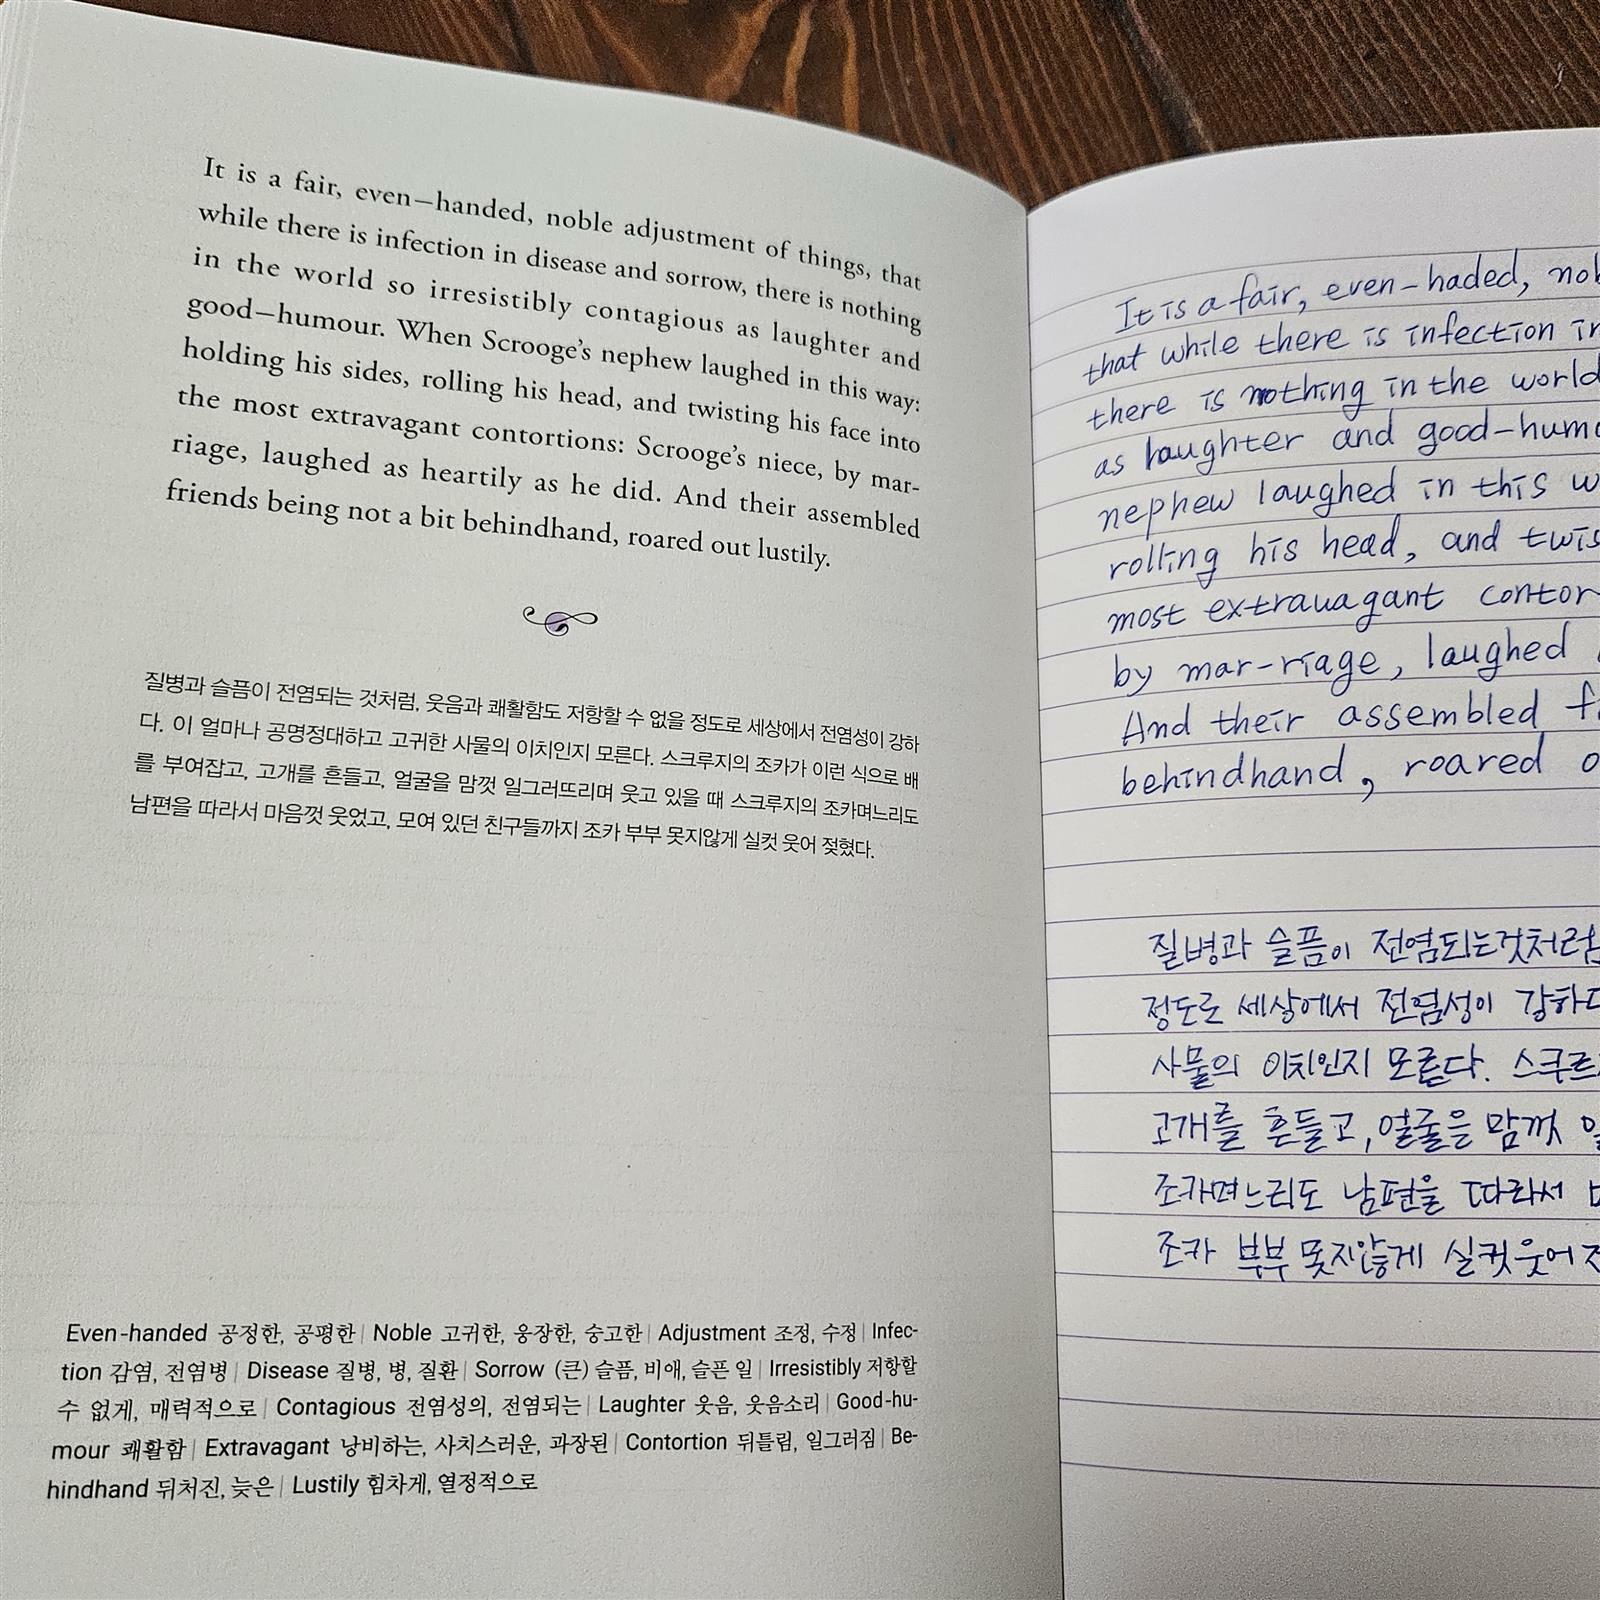 It is a fair, even—handed, noble adjustment of things, that
while there is infection in disease and sorrow, there is nothing
in the world so irresistibly contagious as laughter and
good—humour. When Scrooge's nephew laughed in this way:
holding his sides, rolling his head, and twisting his face into
the most extravagant contortions: Scrooge's niece, by mar-
riage, laughed as heartily as he did. And their assembled
friends being not a bit behindhand, roared out lustily.
질병과 슬픔이 전염되는 것처럼, 웃음과 쾌활함도 저항할 수 없을 정도로 세상에서 전염성이 강하
다. 이 얼마나 공명정대하고 고귀한 사물의 이치인지 모른다. 스크루지의 조카가 이런 식으로 배
를 부여잡고, 고개를 흔들고, 얼굴을 맘껏 일그러뜨리며 웃고 있을 때 스크루지의 조카며느리도
남편을 따라서 마음껏 웃었고, 모여 있던 친구들까지 조카 부부 못지않게 실컷 웃어 젖혔다.
Even-handed 공정한, 공평한 | Noble 고귀한, 웅장한, 숭고한 | Adjustment 조정, 수정 | Infec-
tion 감염, 전염병 | Disease 질병, 병, 질환 | Sorrow (큰) 슬픔, 비애, 슬픈 일 | Irresistibly 저항할
수 없게, 매력적으로 | Contagious 전염성의, 전염되는 | Laughter 웃음, 웃음소리 | Good-hu-
mour 쾌활함 | Extravagant 낭비하는, 사치스러운, 과장된 | Contortion 뒤틀림, 일그러짐 | Be-
hindhand 뒤처진, 늦은 | Lustily 힘차게, 열정적으로
It is a fair, even-haded, nob
that while there is infection in
there is nothing in the world
as laughter and good-humo
nephew laughed in this w
rolling his head, and twis
most extravagant contor
by mar-riage, laughed
And their assembled f
behindhand, roared o
질병과 슬픔이 전염되는것처럼
정도로 세상에서 전염성이 강하다
사물의 이치인지 모른다. 스쿠르
고개를 흔들고, 얼굴을 맘껏 일
조카며느리도 남편을 따라서
조카 부부 못지않게 실컷웃어